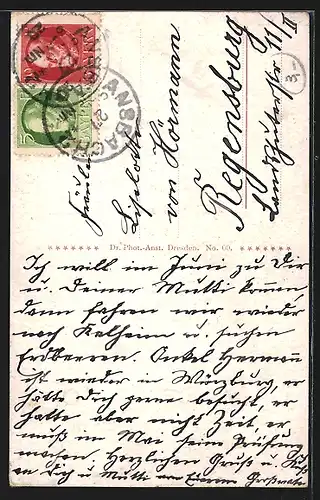 ANSBACH
Fräulein
Liselotte
von Hörmann
Regensburg
Landshuterstr. 11/II
3,-
Dr. Phot.-Anst. Dresden. No. 60.
Ich will im Juni zu Dir
u. Deiner Mutti kommen,
dann fahren wir wieder
nach Kelheim u. suchen
Erdbeeren. Onkel Hermann
ist wieder in Würzburg, er
hätte Dich gerne besucht, er
hatte aber nicht Zeit, er
muß im Mai seine Prüfung
machen. Herzlichen Gruß u. Kuß
an Dich u. Mutti von Eurer Großmutter